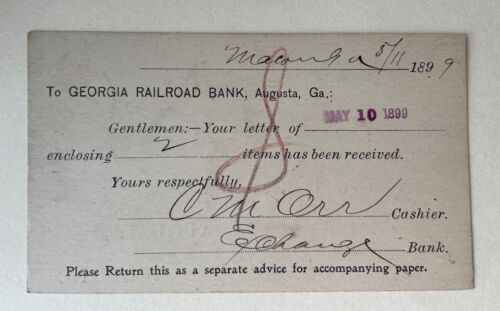 Macon Ga 5/11 1899
To GEORGIA RAILROAD BANK, Augusta, Ga.:
Gentlemen:—Your letter of MAY 10 1899
enclosing 2 items has been received.
Yours respectfully,
C M Orr Cashier.
Exchange Bank.
Please Return this as a separate advice for accompanying paper.